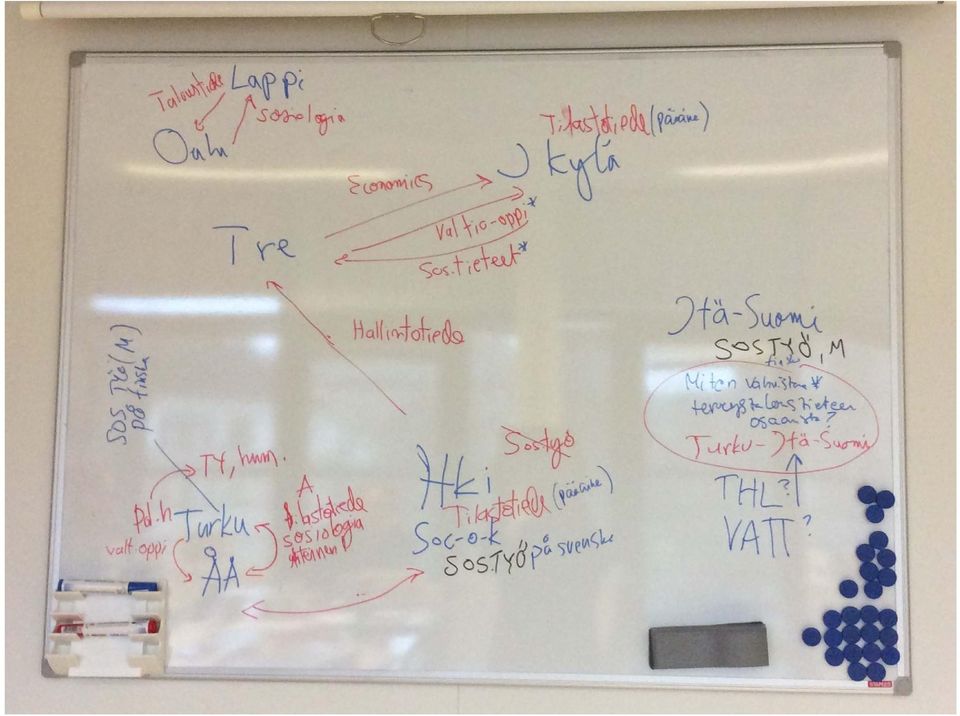 Lappi
Taloustiede
sosiologia
Oulu
Tilastotiede (pääaine)
Jkylä
Economics
Valtio-oppi*
Sos.tieteet*
Tre
Hallintotiede
Itä-Suomi
SOSTYÖ, M
Miten vahvistaa*
terveystaloustieteen
osaamista?
Turku-Itä-Suomi
THL?
VATT?
SOS TYÖ (M)
på finska
TY, hum.
Pol.h
valtioppi
Turku
ÅÅ
A
tilastotiede
sosiologia
Sostyö
Hki
Tilastotiede (pääaine)
Soc-o-k
SOSTYÖ på svenska
STAPLES